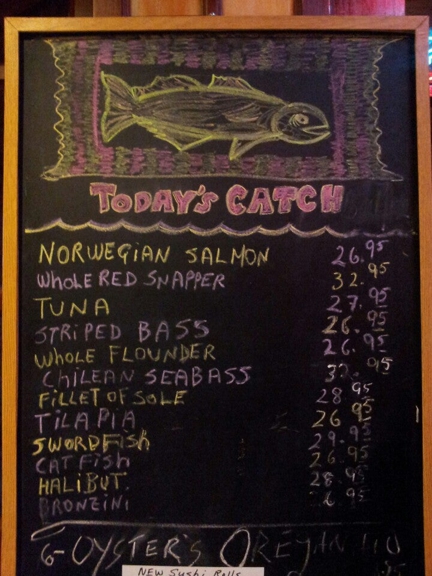 TODAY'S CATCH
NORWEGIAN SALMON 26.95
WHOLE RED SNAPPER 32.95
TUNA 27.95
STRIPED BASS 26.95
WHOLE FLOUNDER 26.95
CHILEAN SEABASS 32.95
FILLET OF SOLE 28.95
TILAPIA 26.95
SWORDFISH 29.95
CATFISH 26.95
HALIBUT. 28.95
BRONZINI .95
6-OYSTER'S
NEW Sushi Rolls